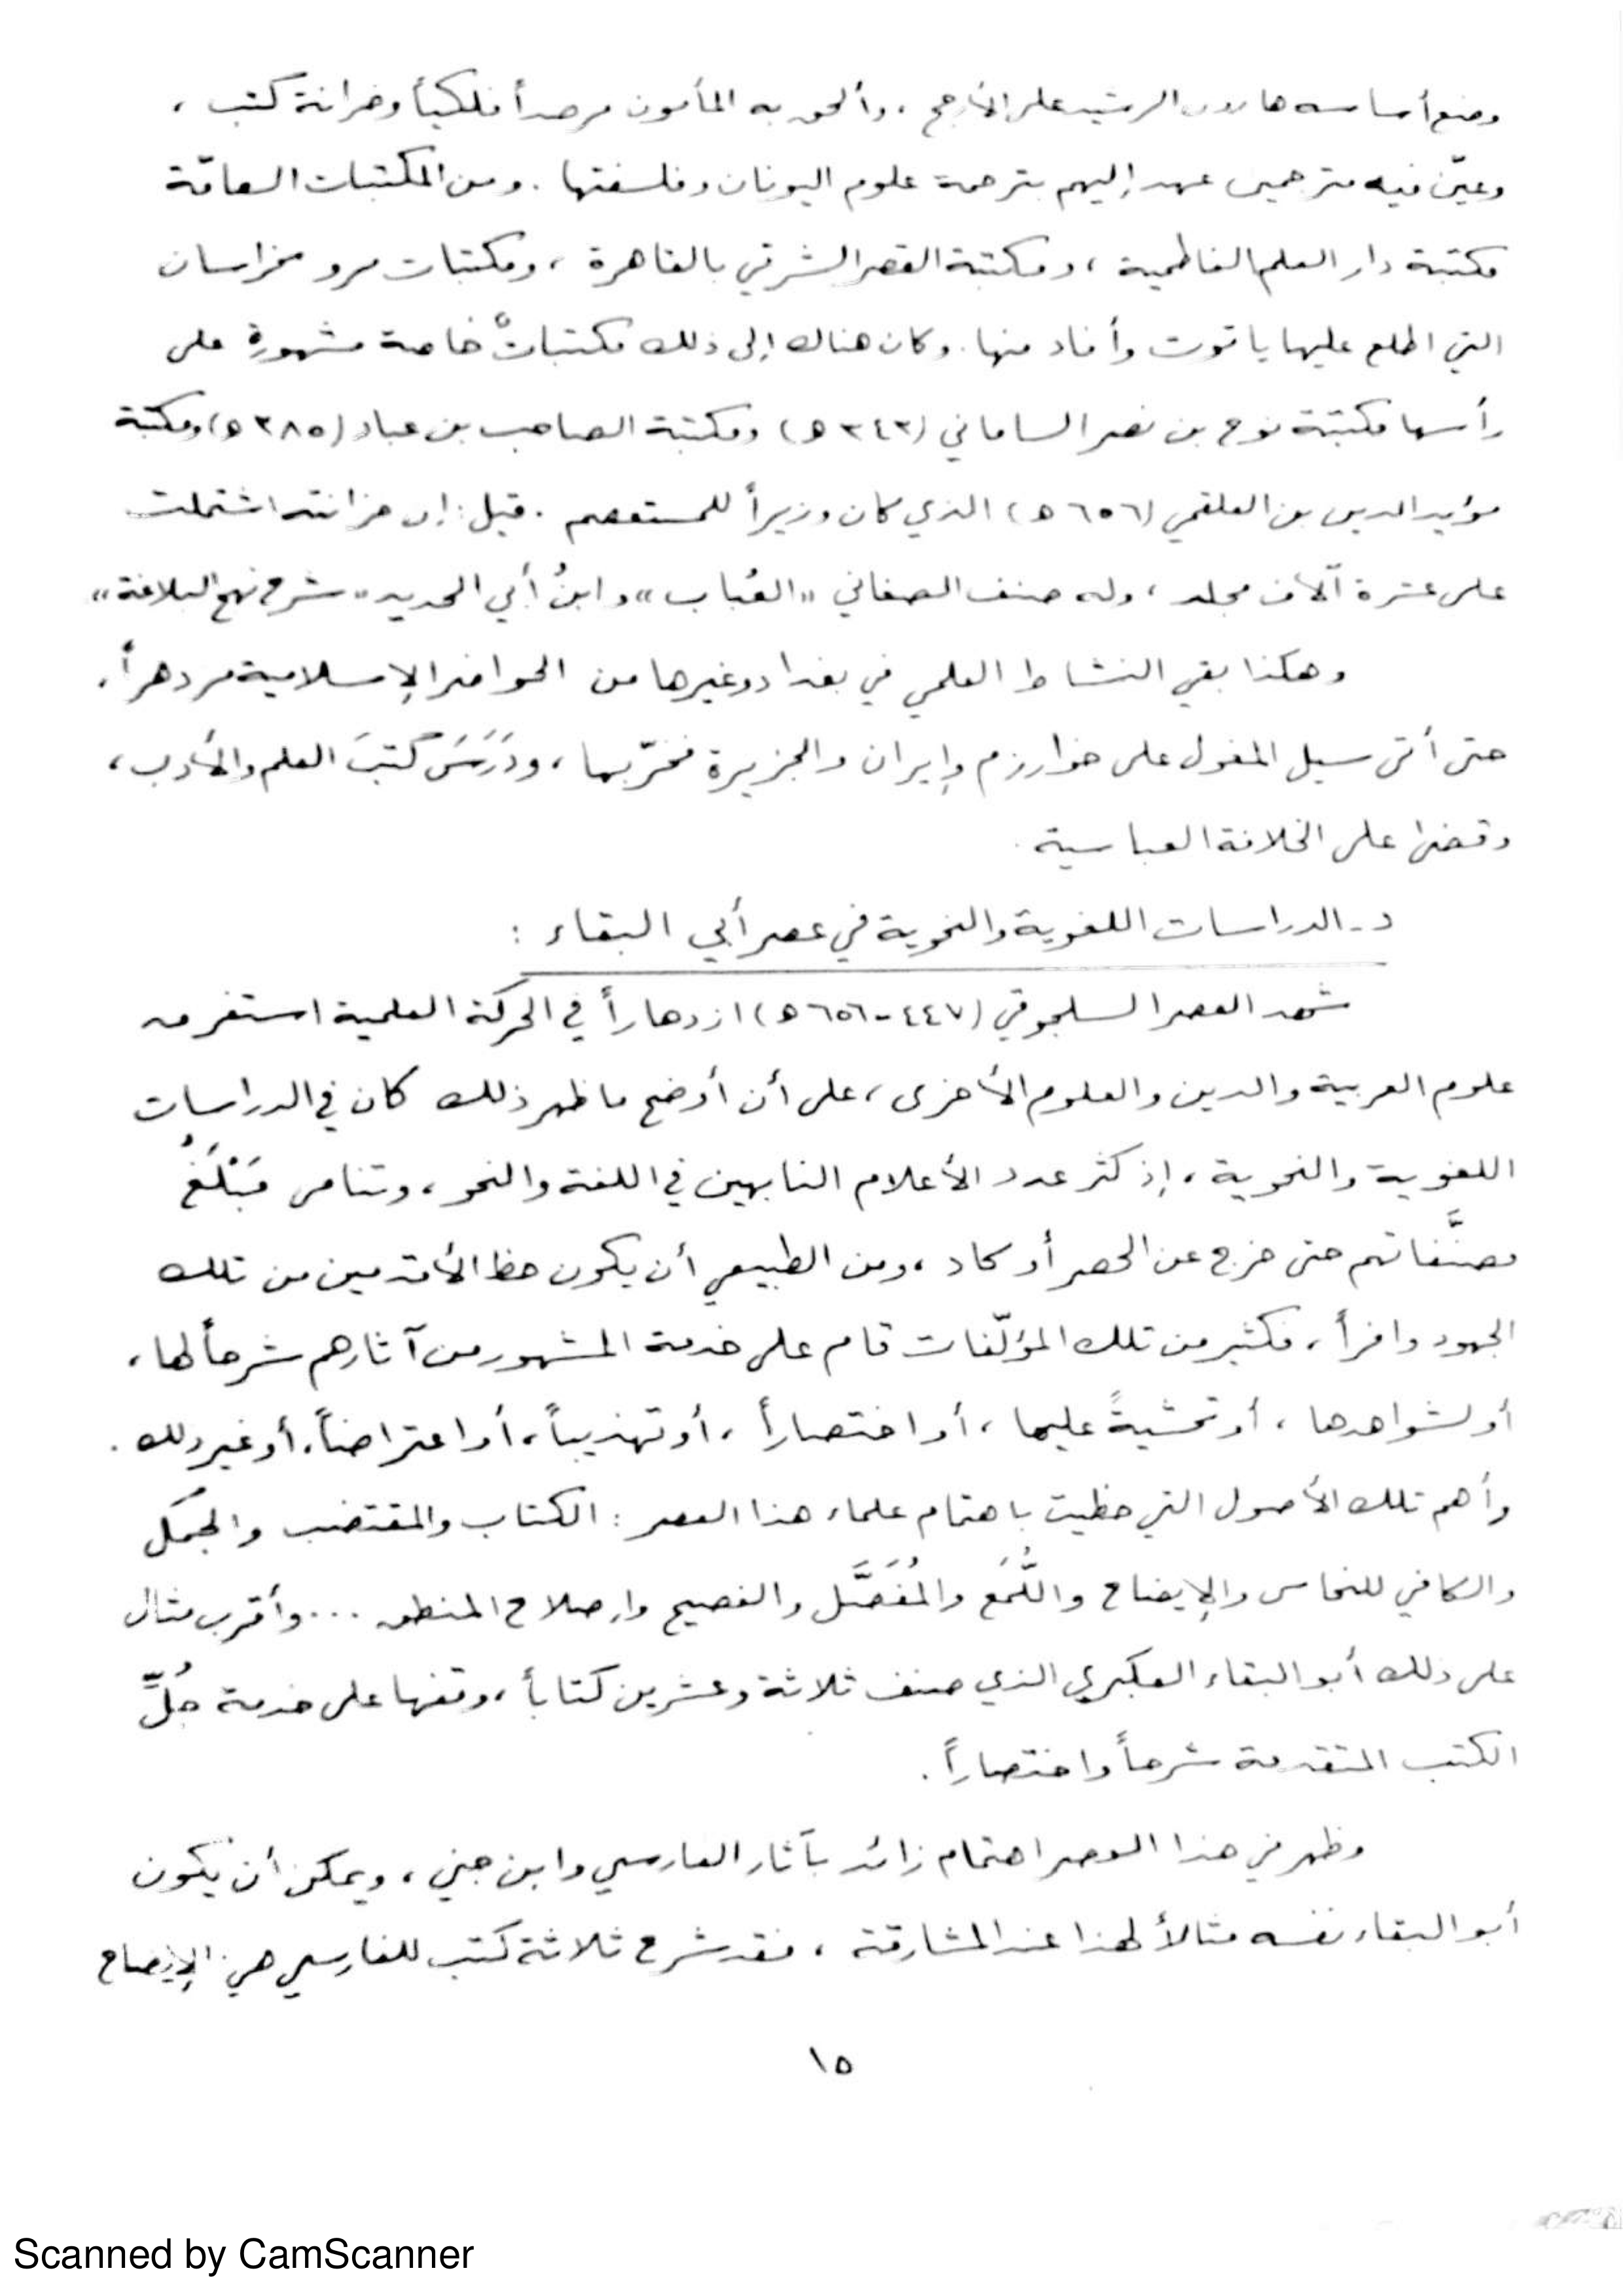 وضع أساسه هارون الرشيد على الأرجح ، وألحق به المأمون مرصداً فلكياً وخزانة كتب ،
وعيّن فيه مترجمين عهد إليهم بترجمة علوم اليونان وفلسفتها . ومن المكتبات العامّة
مكتبة دار العلم الفاطمية ، ومكتبة القصر الشرقي بالقاهرة ، ومكتبات مرو بخراسان
التي اطلع عليها ياقوت وأفاد منها . وكان هناك إلى ذلك مكتباتٌ خاصة مشهورة على
رأسها مكتبة نوح بن نصر الساماني (٣٤٣ هـ) ومكتبة الصاحب بن عباد (٣٨٥ هـ) ومكتبة
مؤيد الدين بن العلقمي (٦٥٦ هـ) الذي كان وزيراً للمستعصم . قيل : إن خزانته اشتملت
على عشرة آلاف مجلد ، وله صنف الصغاني «العُباب» وابنُ أبي الحديد «شرح نهج البلاغة»
وهكذا بقي النشاط العلمي في بغداد وغيرها من الحواضر الإسلامية مزدهراً .
حتى أتى سيل المغول على خوارزم وإيران والجزيرة فخرّبها ، ودَرَسَ كتبَ العلم والأدب ،
وقضى على الخلافة العباسية .
د - الدراسات اللغوية والنحوية في عصر أبي البقاء :
شهد العصر السلجوقي (٤٤٧ - ٦٥٦ هـ) ازدهاراً في الحركة العلمية استغرق
علوم العربية والدين والعلوم الأخرى ، على أن أوضح ما ظهر ذلك كان في الدراسات
اللغوية والنحوية ، إذ كثر عدد الأعلام النابهين في اللغة والنحو ، وتنامى مَبْلَغُ
مصنَّفاتهم حتى خرج عن الحصر أو كاد ، ومن الطبيعي أن يكون حظ الأقدمين من تلك
الجهود وافراً ، فكثير من تلك المؤلّفات قام على خدمة المشهور من آثارهم شرحاً لها ،
أو لشواهدها ، أو تحشيةً عليها ، أو اختصاراً ، أو تهذيباً ، أو اعتراضاً ، أو غير ذلك .
وأهم تلك الأصول التي حظيت باهتمام علماء هذا العصر : الكتاب والمقتضب والجمل
والكافي للنحاس والإيضاح واللُّمَع والمُفَصَّل والفصيح وإصلاح المنطق ... وأقرب مثال
على ذلك أبو البقاء العكبري الذي صنف ثلاثة وعشرين كتاباً ، وقفها على خدمة جُلِّ
الكتب المتقدمة شرحاً واختصاراً .
وظهر في هذا العصر اهتمام زائد بآثار الفارسي وابن جني ، ويمكن أن يكون
أبو البقاء نفسه مثالاً لهذا عند المشارقة ، فقد شرح ثلاثة كتب للفارسي هي : الإيضاح
١٥
Scanned by CamScanner